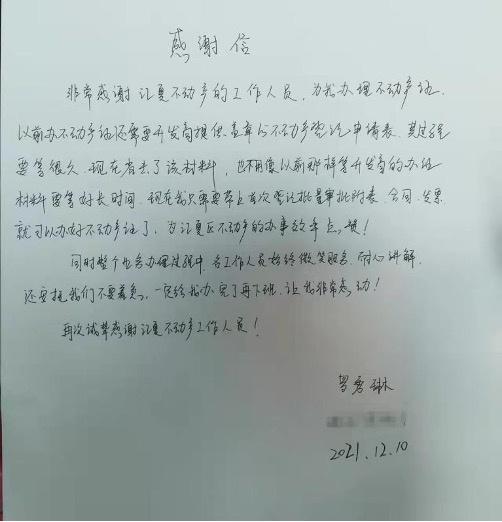 感谢信
非常感谢江夏不动产的工作人员，为我办理不动产证，
以前办不动产证还需要开发商提供盖章的不动产登记申请表，其过程
要等很久，现在省去了该材料，也不用像以前那样等开发商的办证
材料要等好长时间，现在我只需要带上首次登记批量审批附表、合同、发票
就可以办好不动产证了，为江夏区不动产的办事效率点赞！
同时整个业务办理过程中，各工作人员始终微笑服务，耐心讲解，
还安抚我们不要着急，一定给我办完了再下班，让我非常感动！
再次诚挚感谢江夏不动产工作人员！
琳
2021.12.10